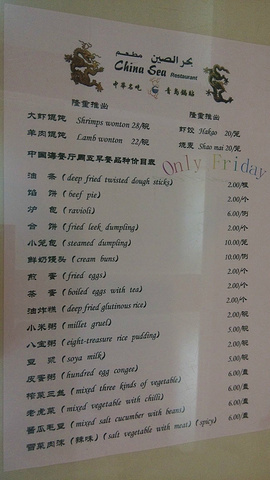 مطعم بحر الصين
China Sea Restaurant
中华名吃 青岛锅贴
隆重推出 隆重推出
大虾馄饨 Shrimps wonton 28/碗 虾饺 Hakgo 20/笼
羊肉馄饨 Lamb wonton 22/碗 烧麦 Shao mai 20/笼
中国海餐厅周五早餐品特价目表
Only Friday
油 条 (deep fried twisted dough sticks) 2.00/根
馅 饼 (beef pie) 2.00/个
炉 包 (ravioli) 6.00/例
合 饼 (fried leek dumpling) 2.00/个
小笼包 (steamed dumpling) 10.00/笼
鲜奶馒头 (cream buns) 10.00/例
煎 蛋 (fried eggs) 2.00/个
茶 蛋 (boiled eggs with tea) 2.00/个
油炸糕 (deep fried glutinous rice) 2.00/个
小米粥 (millet gruel) 5.00/碗
八宝粥 (eight-treasure rice pudding) 5.00/碗
豆 浆 (soya milk) 2.00/碗
皮蛋粥 (hundred egg congee) 5.00/碗
榨菜三丝 (mixed three kinds of vegetable) 6.00/盘
老虎菜 (mixed vegetable with chilli) 6.00/盘
酱瓜毛豆 (mixed salt cucumber with beans) 6.00/盘
雪菜肉沫 (辣味) (salt vegetable with meat) (spicy) 6.00/盘